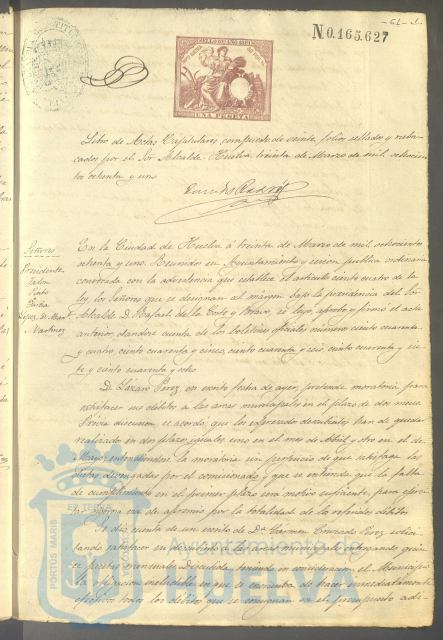 -61- 1.
N 0.165.627
SELLO 11º AÑO 1881
UNA PESETA
Libro de Actas Capitulares compuesto de veinte folios sellados y rubricados por el Sor Alcalde. Huelva treinta de Marzo de mil ochocientos ochenta y uno
En la Ciudad de Huelva á treinta de Marzo de mil ochocientos
ochenta y uno. Reunido su Ayuntamiento en sesion publica ordinaria
convocada con la advertencia que establece el articulo ciento cuatro de la
ley, los Señores que se designan al margen bajo la presidencia del Sor
Alcalde D. Rafael de la Corte y Bravo, se leyó, aprobó y firmó el acta
anterior, dandose cuenta de los Boletines oficiales numero ciento cuarenta
y cuatro, ciento cuarenta y cinco, ciento cuarenta y seis, ciento cuarenta y sie-
te y ciento cuarenta y ocho
Señores
Presidente
Jalon
Pinto
Peña
Martinez
D. Lázaro Perez en escrito fecha de ayer, pretende moratoria para
satisfacer sus débitos a las arcas municipales en el plazo de dos meses
Previa discusion se acordó, que los espresados descubiertos han de quedar
realizados en dos plazos iguales uno en el mes de Abril y otro en el de
Mayo, entendiendose la moratoria sin perjuicio de que satisfaga las
dietas devengadas por el comisionado y que se entienda que la falta
de cumplimiento en el primer plazo sera motivo suficiente para
de apremio por la totalidad de los referidos débitos
Se dió cuenta de un escrito de Dª Carmen Perez solici-
tando satisfacer su descubierto a las arcas municipales entregando quin-
ce pesetas mensuales. Discutida, teniendo en consideracion el Municipio
la obligacion ineludible en que se encuentra de hacer inmediatamente
efectivos todos los débitos que se consignan en el presupuesto adi-
PORTUS MARIS
Ayuntamiento de
HUELVA